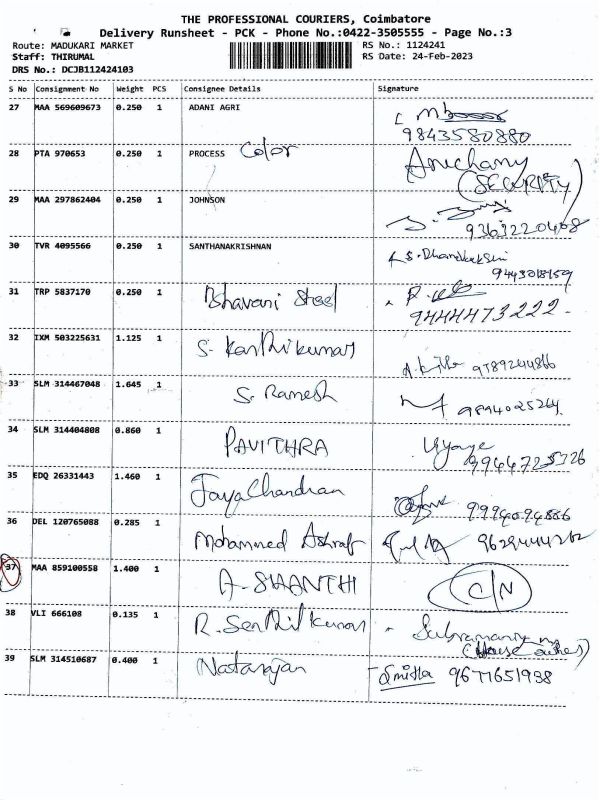 THE PROFESSIONAL COURIERS, Coimbatore
Delivery Runsheet - PCK - Phone No.:0422-3505555 - Page No.:3
Route: MADUKARI MARKET RS No.: 1124241
Staff: THIRUMAL RS Date: 24-Feb-2023
DRS No.: DCJB112424103
S No Consignment No Weight PCS Consignee Details Signature
27 MAA 569609673 0.250 1 ADANI AGRI
9843580880
28 PTA 970653 0.250 1 PROCESS Color
(SECURITY)
29 MAA 297862404 0.250 1 JOHNSON
9363220408
30 TVR 4095566 0.250 1 SANTHANAKRISHNAN
31 TRP 5837170 0.250 1 Bshavani Steel
9444473222
32 IXM 503225631 1.125 1 S. Karthikumar
33 SLM 314467048 1.645 1 S. Ramesh
9894025264
34 SLM 314404808 0.860 1 PAVITHRA
35 EDQ 26331443 1.460 1 JayaChandran
36 DEL 120765088 0.285 1 Mohammed Ashraf
37 MAA 859100558 1.400 1 A. SHANTHI C/N
38 VLI 666108 0.135 1 R. Senthil kumar
39 SLM 314510687 0.400 1 Natarajan
9677651938